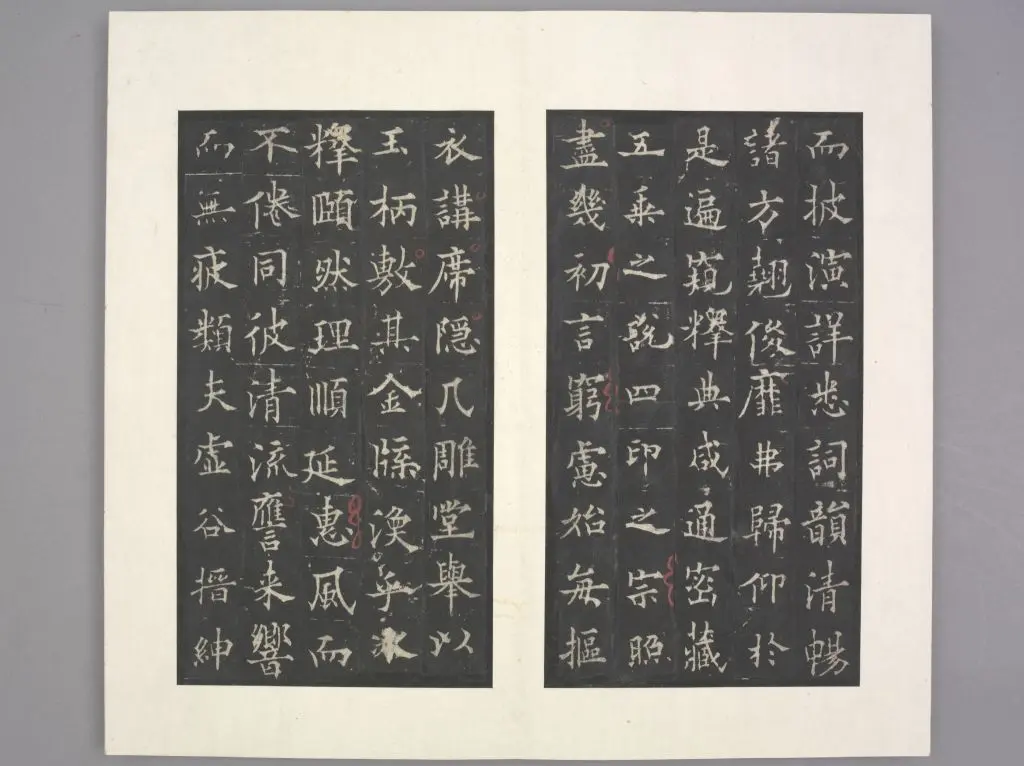 而披演詳悉詞韻清暢
諸方翹俊靡弗歸仰於
是遍窺釋典咸通密藏
五乗之說四印之宗照
盡幾初言窮慮始每摳
衣講席隠几雕堂舉以
玉柄敷其金牒渙乎氷
釋頤然理順延惠風而
不倦同彼清流應言来響
而無疲類夫虛谷搢紳